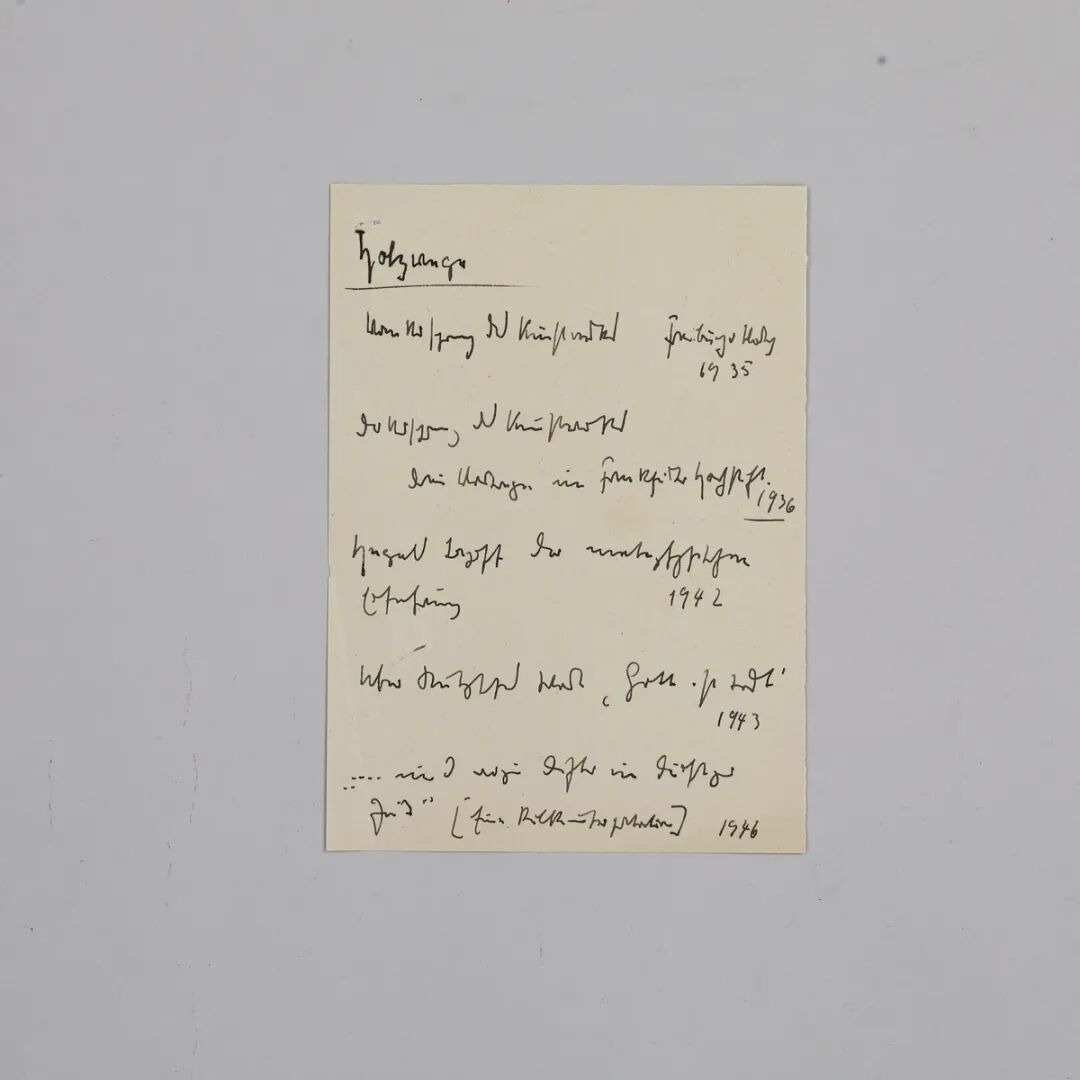 Holzwege
Vom Ursprung des Kunstwerkes Freiburger Vortrag
1935
Der Ursprung des Kunstwerkes
drei Vorträge im Frankfurter Hochstift.
1936
Hegels Begriff der metaphysischen
Erfahrung 1942
Über Nietzsches Wort „Gott ist tot"
1943
.... und wozu Dichter in dürftiger
Zeit" [Eine Rilkeinterpretation] 1946